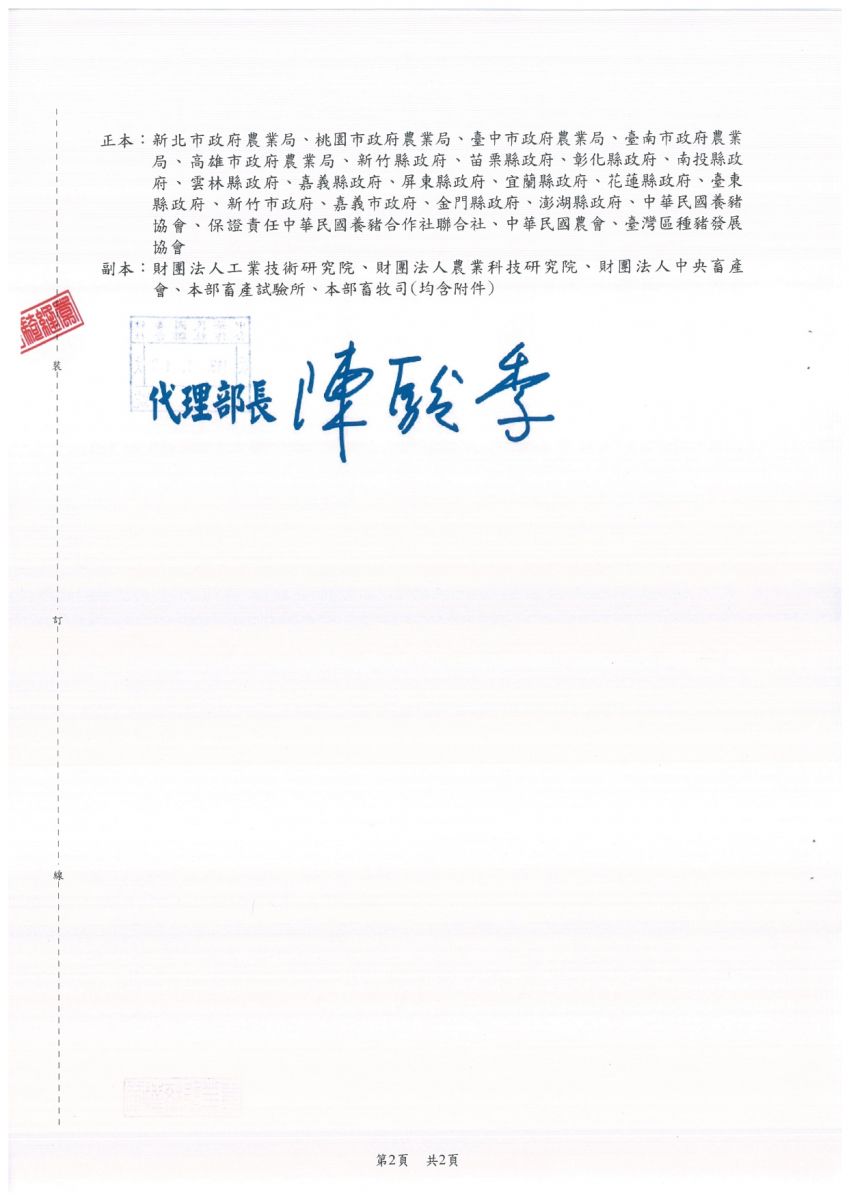 正本：新北市政府農業局、桃園市政府農業局、臺中市政府農業局、臺南市政府農業
局、高雄市政府農業局、新竹縣政府、苗栗縣政府、彰化縣政府、南投縣政
府、雲林縣政府、嘉義縣政府、屏東縣政府、宜蘭縣政府、花蓮縣政府、臺東
縣政府、新竹市政府、嘉義市政府、金門縣政府、澎湖縣政府、中華民國養豬
協會、保證責任中華民國養豬合作社聯合社、中華民國農會、臺灣區種豬發展
協會
副本：財團法人工業技術研究院、財團法人農業科技研究院、財團法人中央畜產
會、本部畜產試驗所、本部畜牧司(均含附件)
裝
代理部長 陳駿季
訂
線
第2頁 共2頁